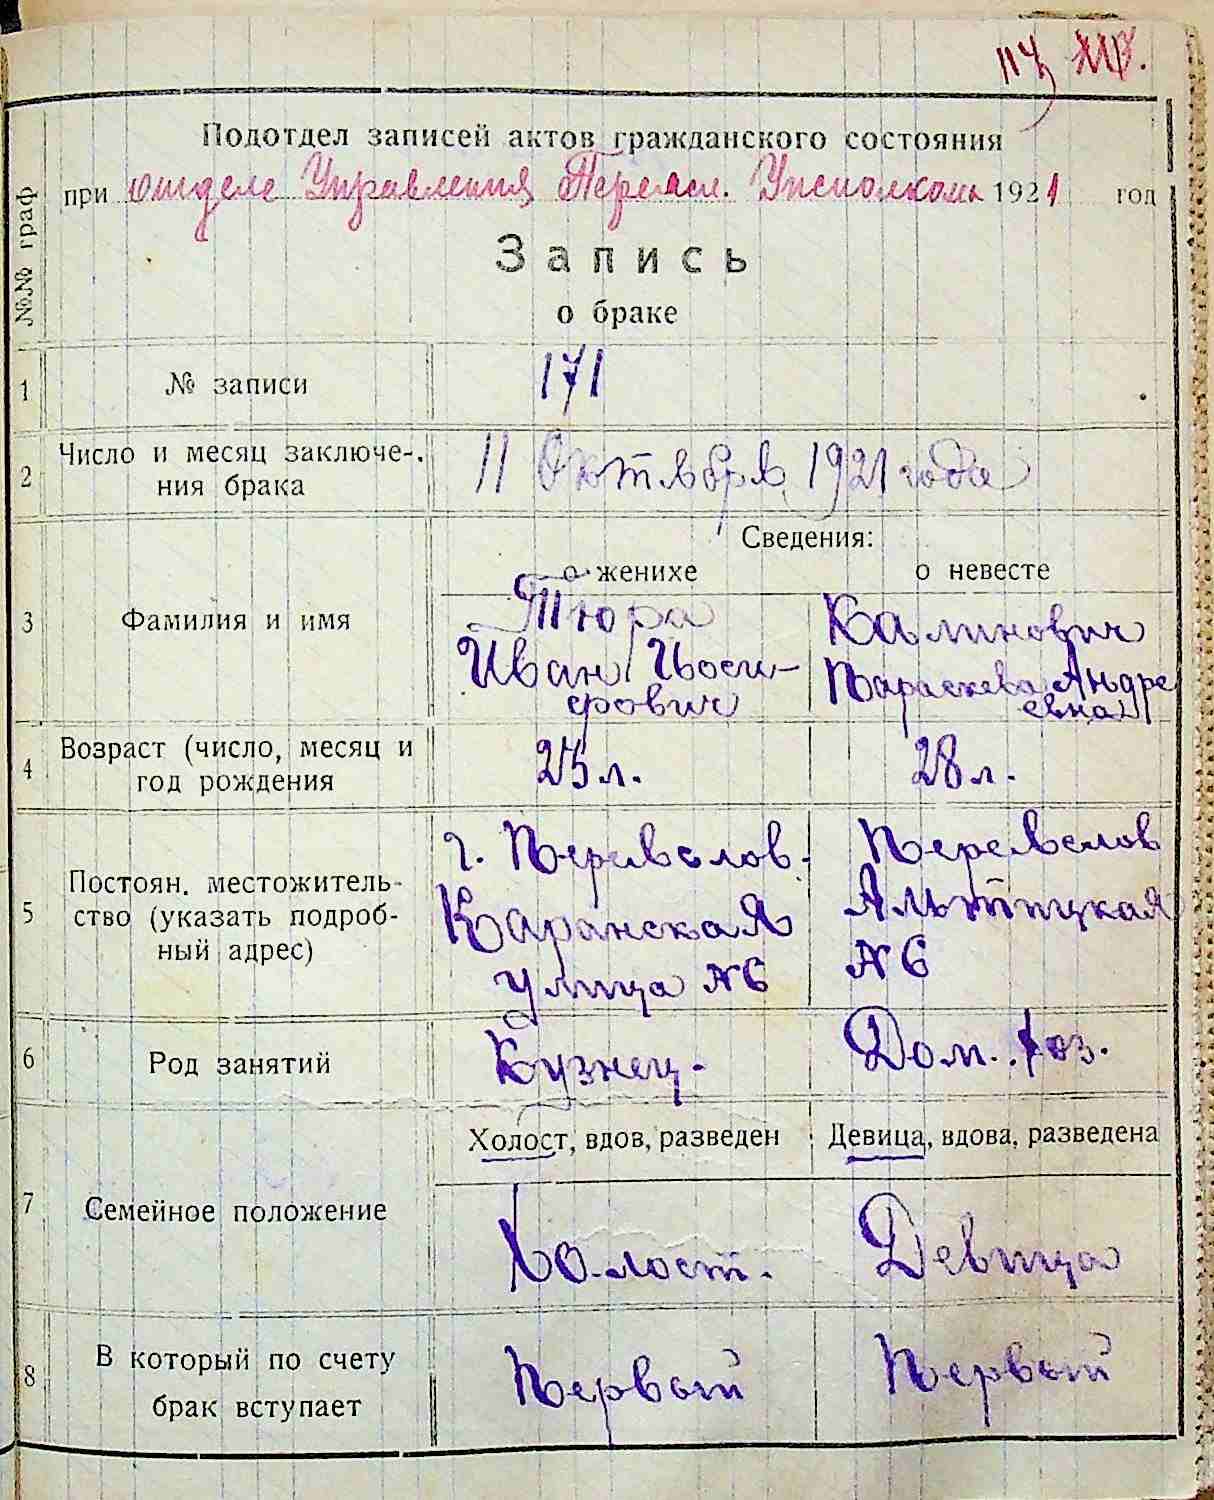 114
Подотдел записей актов гражданского состояния
при отделе Управления Переясл. Уисполкома 1921 год
№№ граф
Запись
о браке
1 № записи 171
2 Число и месяц заключе-
ния брака 11 Октября 1921 года
Сведения:
о женихе о невесте
3 Фамилия и имя
Тюра Калинович
Иван Иоси- Параскева Андре
фович евна
4 Возраст (число, месяц и
год рождения 25 л. 28 л.
5 Постоян. местожитель-
ство (указать подроб-
ный адрес)
г. Переяслов. Переяслов
Каранская Альтицкая
улица №6 №6
6 Род занятий Кузнец. Дом. хоз.
Холост, вдов, разведен Девица, вдова, разведена
7 Семейное положение Холост. Девица
8 В который по счету
брак вступает Первый Первый